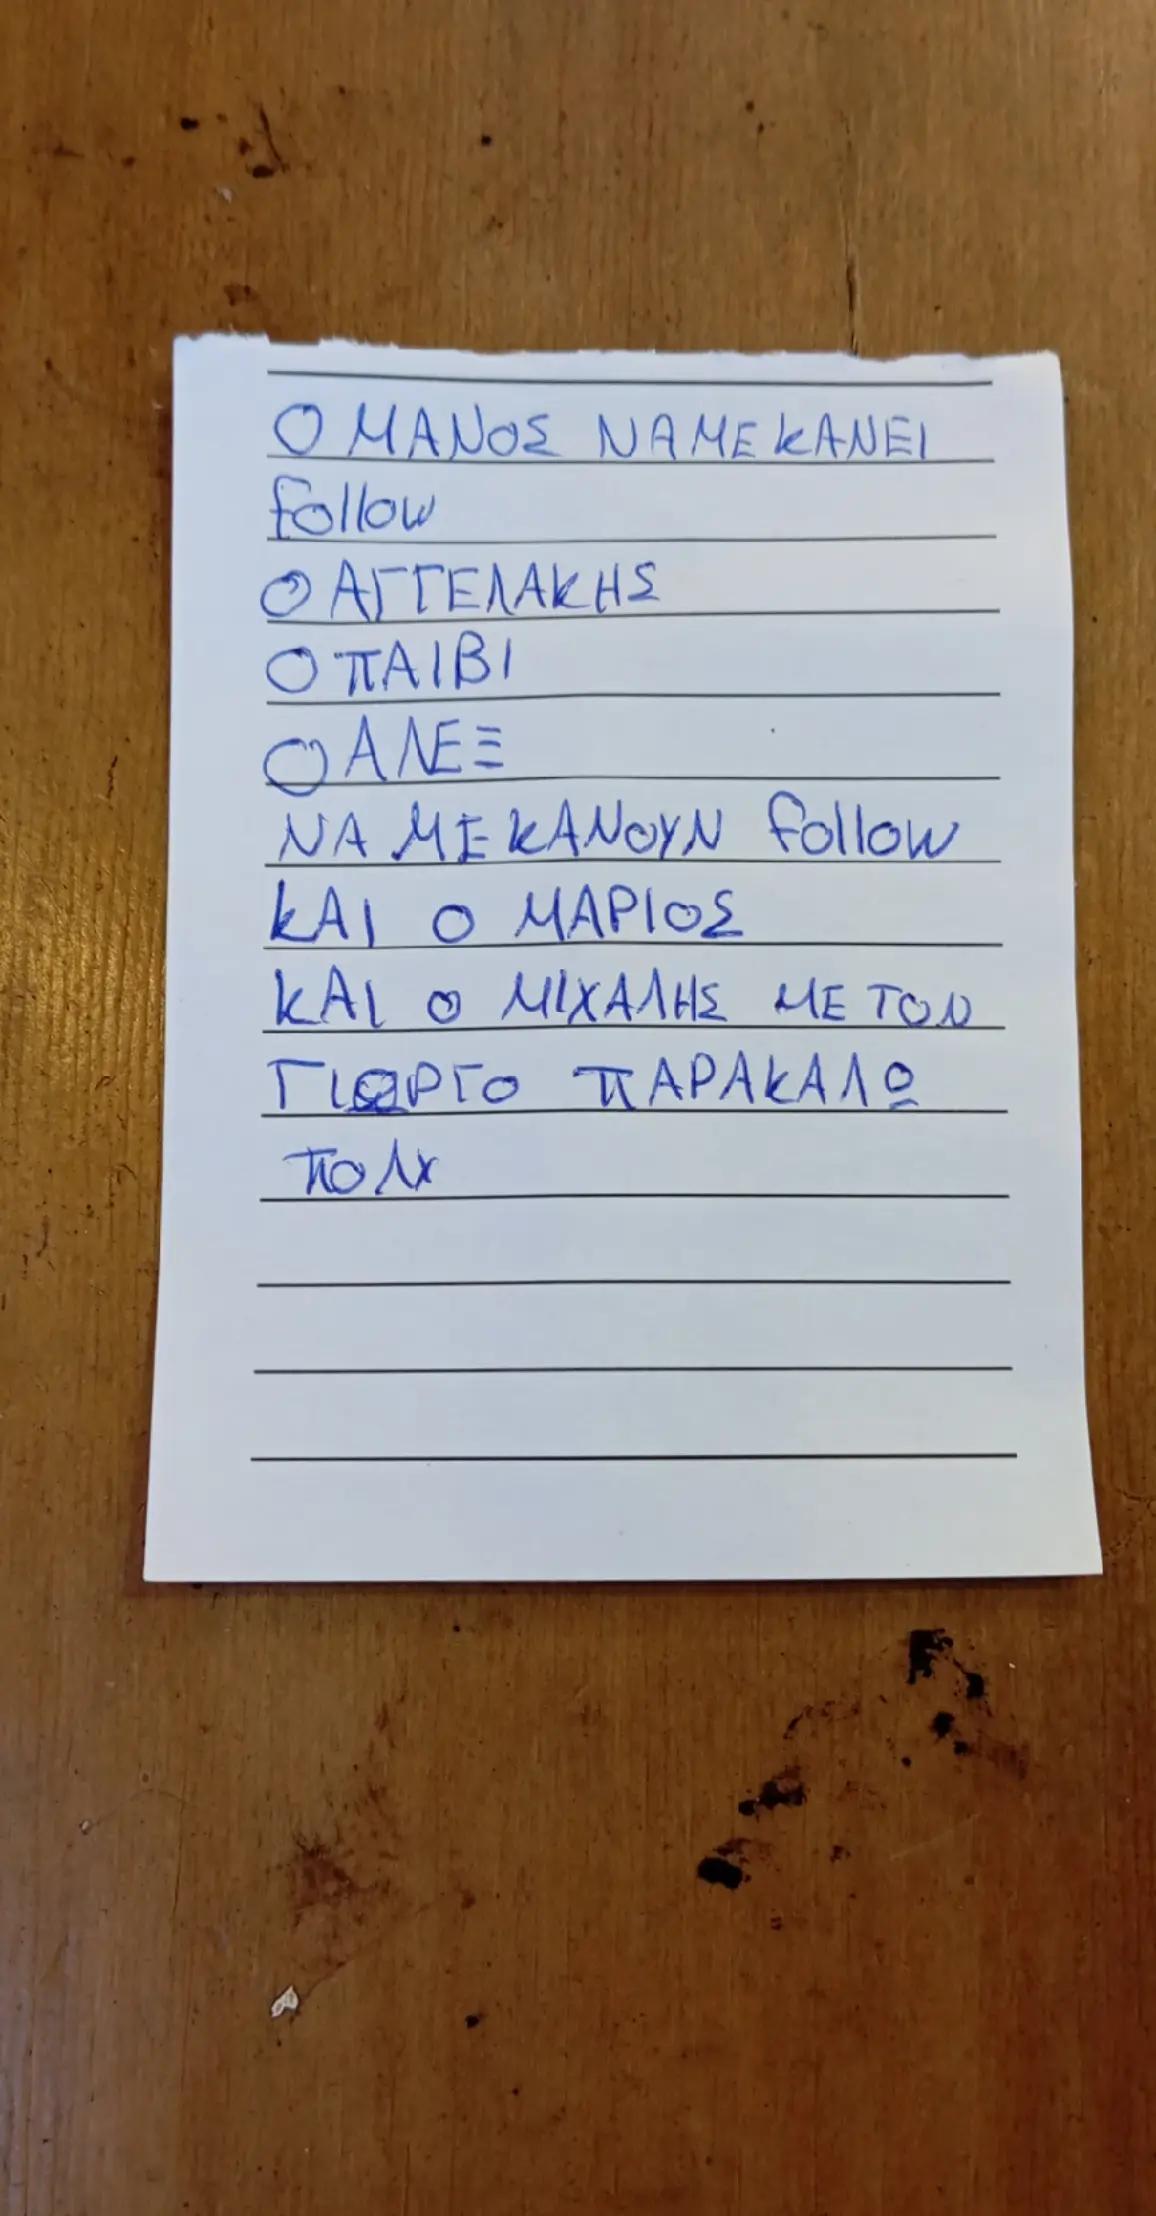 Ο ΜΑΝΟΣ ΝΑ ΜΕ ΚΑΝΕΙ
follow
Ο ΑΓΓΕΛΑΚΗΣ
Ο ΠΑΙΒΙ
Ο ΑΛΕΞ
ΝΑ ΜΕ ΚΑΝΟΥΝ follow
ΚΑΙ Ο ΜΑΡΙΟΣ
ΚΑΙ Ο ΜΙΧΑΛΗΣ ΜΕ ΤΟΝ
ΓΙΩΡΓΟ ΠΑΡΑΚΑΛΩ
ΠΟΛΥ